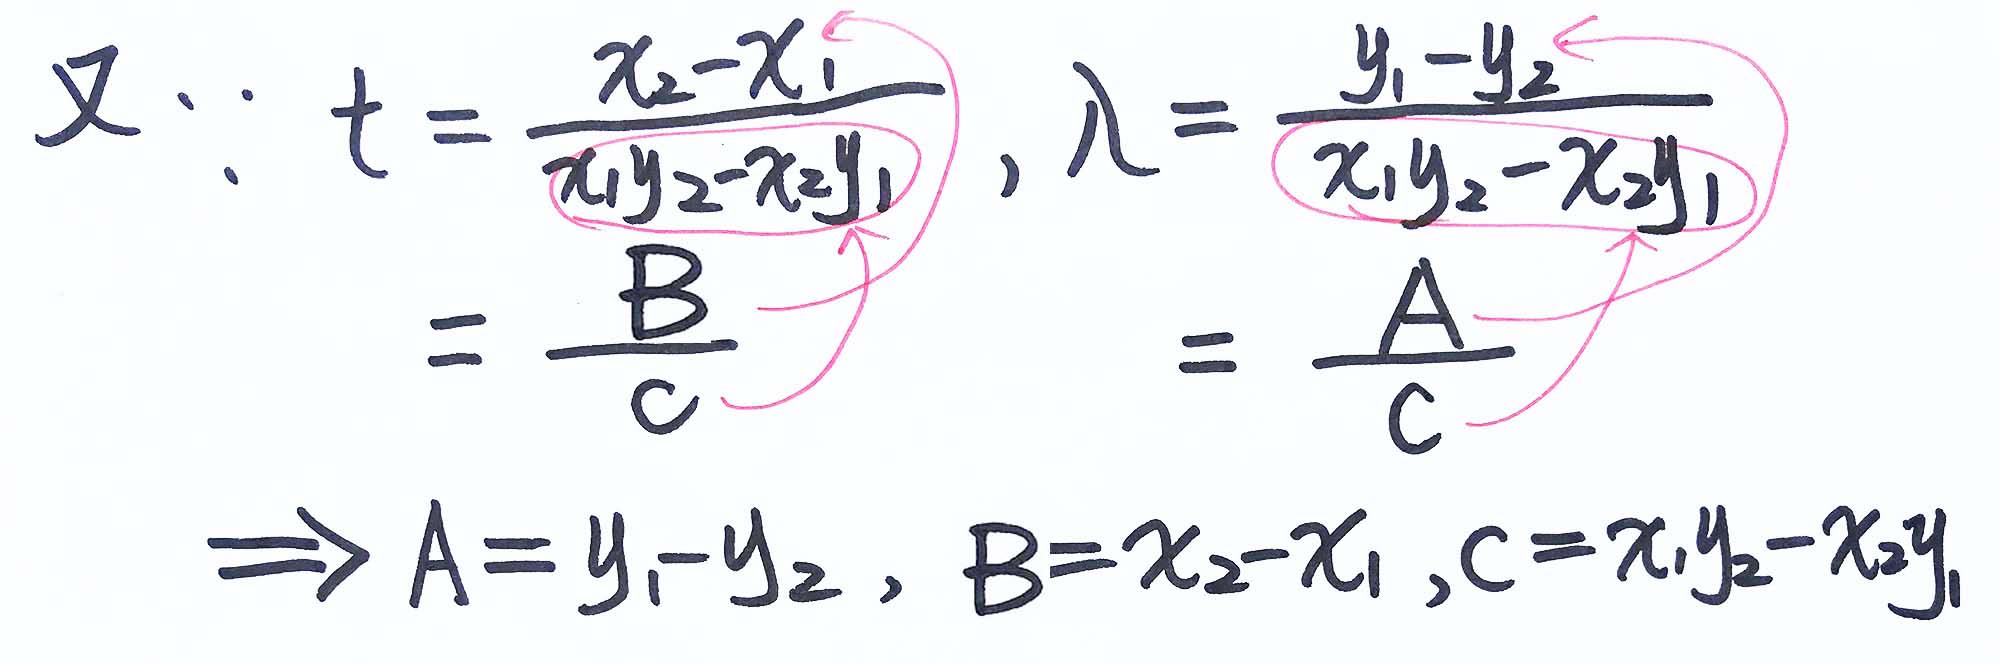 又∵ t = (x₂-x₁)/(x₁y₂-x₂y₁), λ = (y₁-y₂)/(x₁y₂-x₂y₁)
= B/C = A/C
⇒ A = y₁-y₂, B = x₂-x₁, C = x₁y₂-x₂y₁